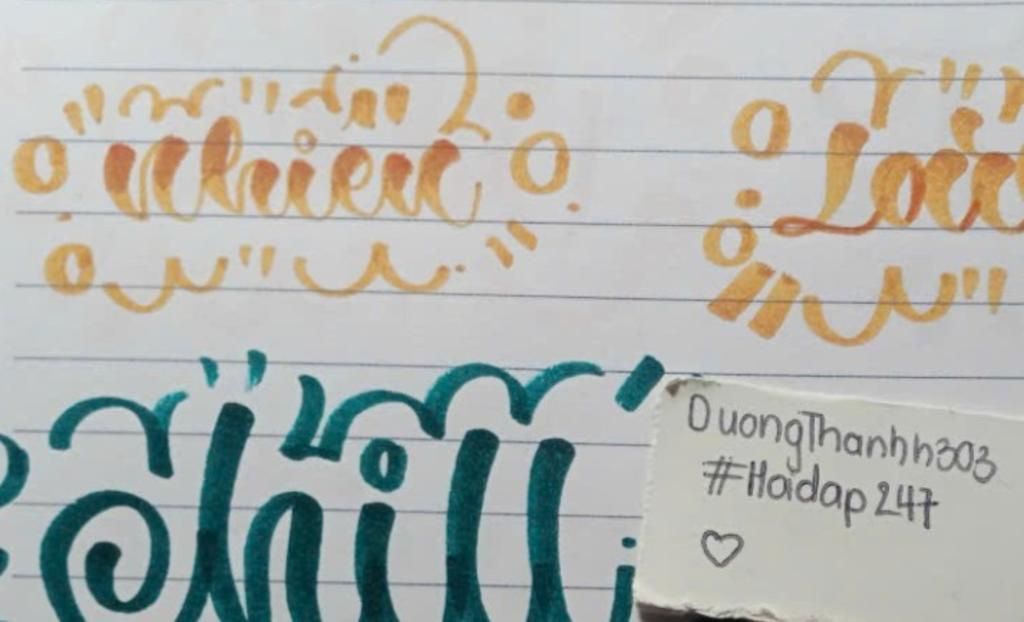 Nhiều
Chill
DuongThanhh303
#Hoidap247